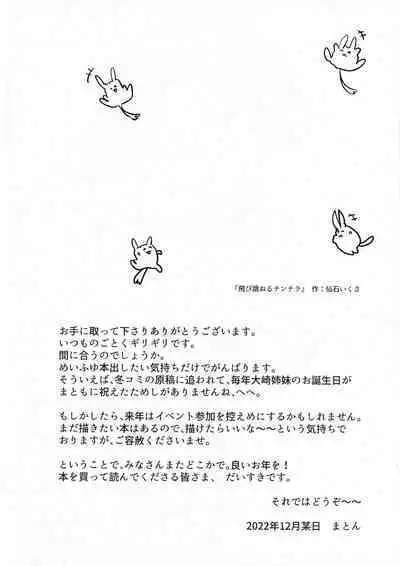 『飛び跳ねるチンチラ』 作：仙石いくさ
お手に取って下さりありがとうございます。
いつものごとくギリギリです。
間に合うのでしょうか。
めいふゆ本出したい気持ちだけでがんばります。
そういえば、冬コミの原稿に追われて、毎年大崎姉妹のお誕生日が
まともに祝えたためしがありませんね、へへ。
もしかしたら、来年はイベント参加を控えめにするかもしれません。
まだ描きたい本はあるので、描けたらいいな～～という気持ちで
おりますが、ご容赦くださいませ。
ということで、みなさんまたどこかで。良いお年を！
本を買って読んでくださる皆さま、 だいすきです。
それではどうぞ～～
2022年12月某日 まとん